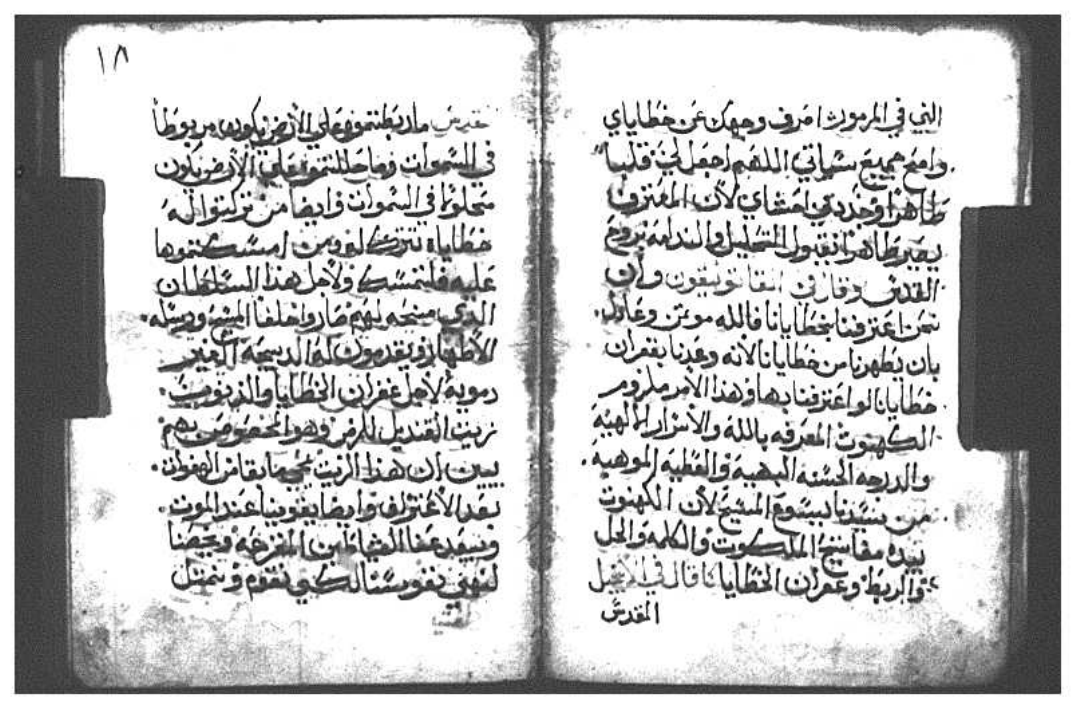 النبي في المزمور اصرف وجهك عن خطاياي
وامح جميع سياتي اللهم اجعل لي قلبا
طاهرا وجدد في احشاي لان المعترف
يصير طاهرا بقبول التحليل والندامه بروح
القدس وقال في القاتوليقون وان
نحن اعترفنا بخطايانا فالله موتمن وعادل
بان يطهرنا من خطايانا لانه وعدنا بغفران
خطايانا لو اعترفنا بها وهذا الامر ملزوم
الكهنوت المعرفه بالله والاسرار الالهية
والدرجه الحسنه البهيه والعطيه الموهبه
من سيدنا يسوع المسيح لان الكهنوت
بيده مفاتيح الملكوت والكلمه والحل
والربط وغفران الخطايا كما قال في الانجيل
المقدس
١٨
المقدس ماربطتموه علي الارض يكون مربوطا
في السموات وماحللتموه علي الارض يكون
محلولا في السموات وايضا من تركتوا له
خطاياه تترك له ومن امسكتموها
عليه فلتمسك ولاجل هذا السلطان
الذي منحه لهم صاروا خلفا المسيح ورسله
الاطهار ويقدمون له الدبيحة الغير
دموية لاجل غفران الخطايا والذنوب
زيت القنديل للمرض وهو المخصوص بهم
يبين ان هذا الزيت يمحي مابقا من الهفوات
بعد الاعتراف وايضا يقوينا عند الموت
ويبعد عنا الشياطين المفزعه ويحصنا
لنهي نفوسنا لكي تقوم وتمتثل